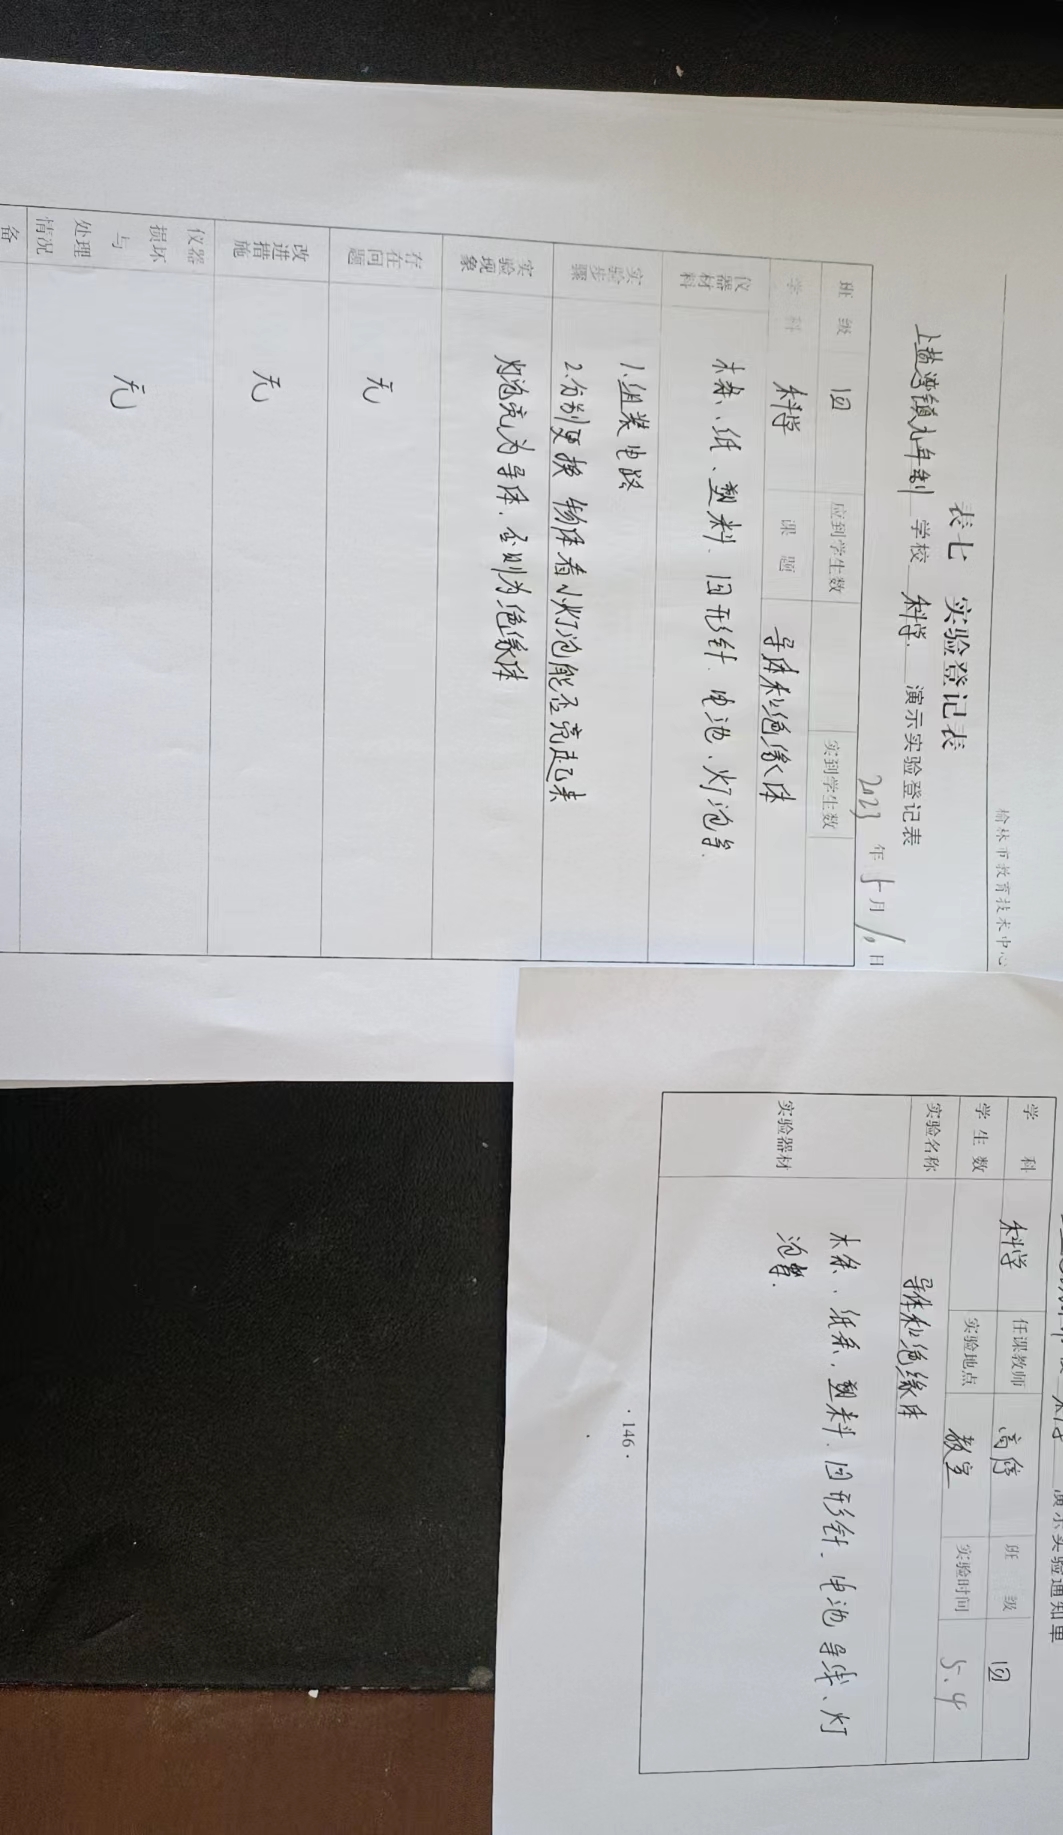 榆林市教育技术中心
表七 实验登记表
上盐湾镇九年制 学校 科学 演示实验登记表
2023 年 5 月 日
班 级 四 应到学生数 实到学生数
学 科 科学 课 题 导体和绝缘体
仪器材料 木条、纸、塑料、回形针、电池、灯泡等.
实验步骤 1.组装电路
2.分别更换物体看小灯泡能否亮起来
实验现象 灯泡亮为导体,否则为绝缘体
存在问题 无
改进措施 无
仪器损坏与处理情况 无
备
演示实验通知单
学 科 科学 任课教师 高 班 级 四
学 生 数 实验地点 教室 实验时间 5.4
实验名称 导体和绝缘体
实验器材 木条、纸条、塑料、回形针、电池、导线、灯
泡等.
·146·